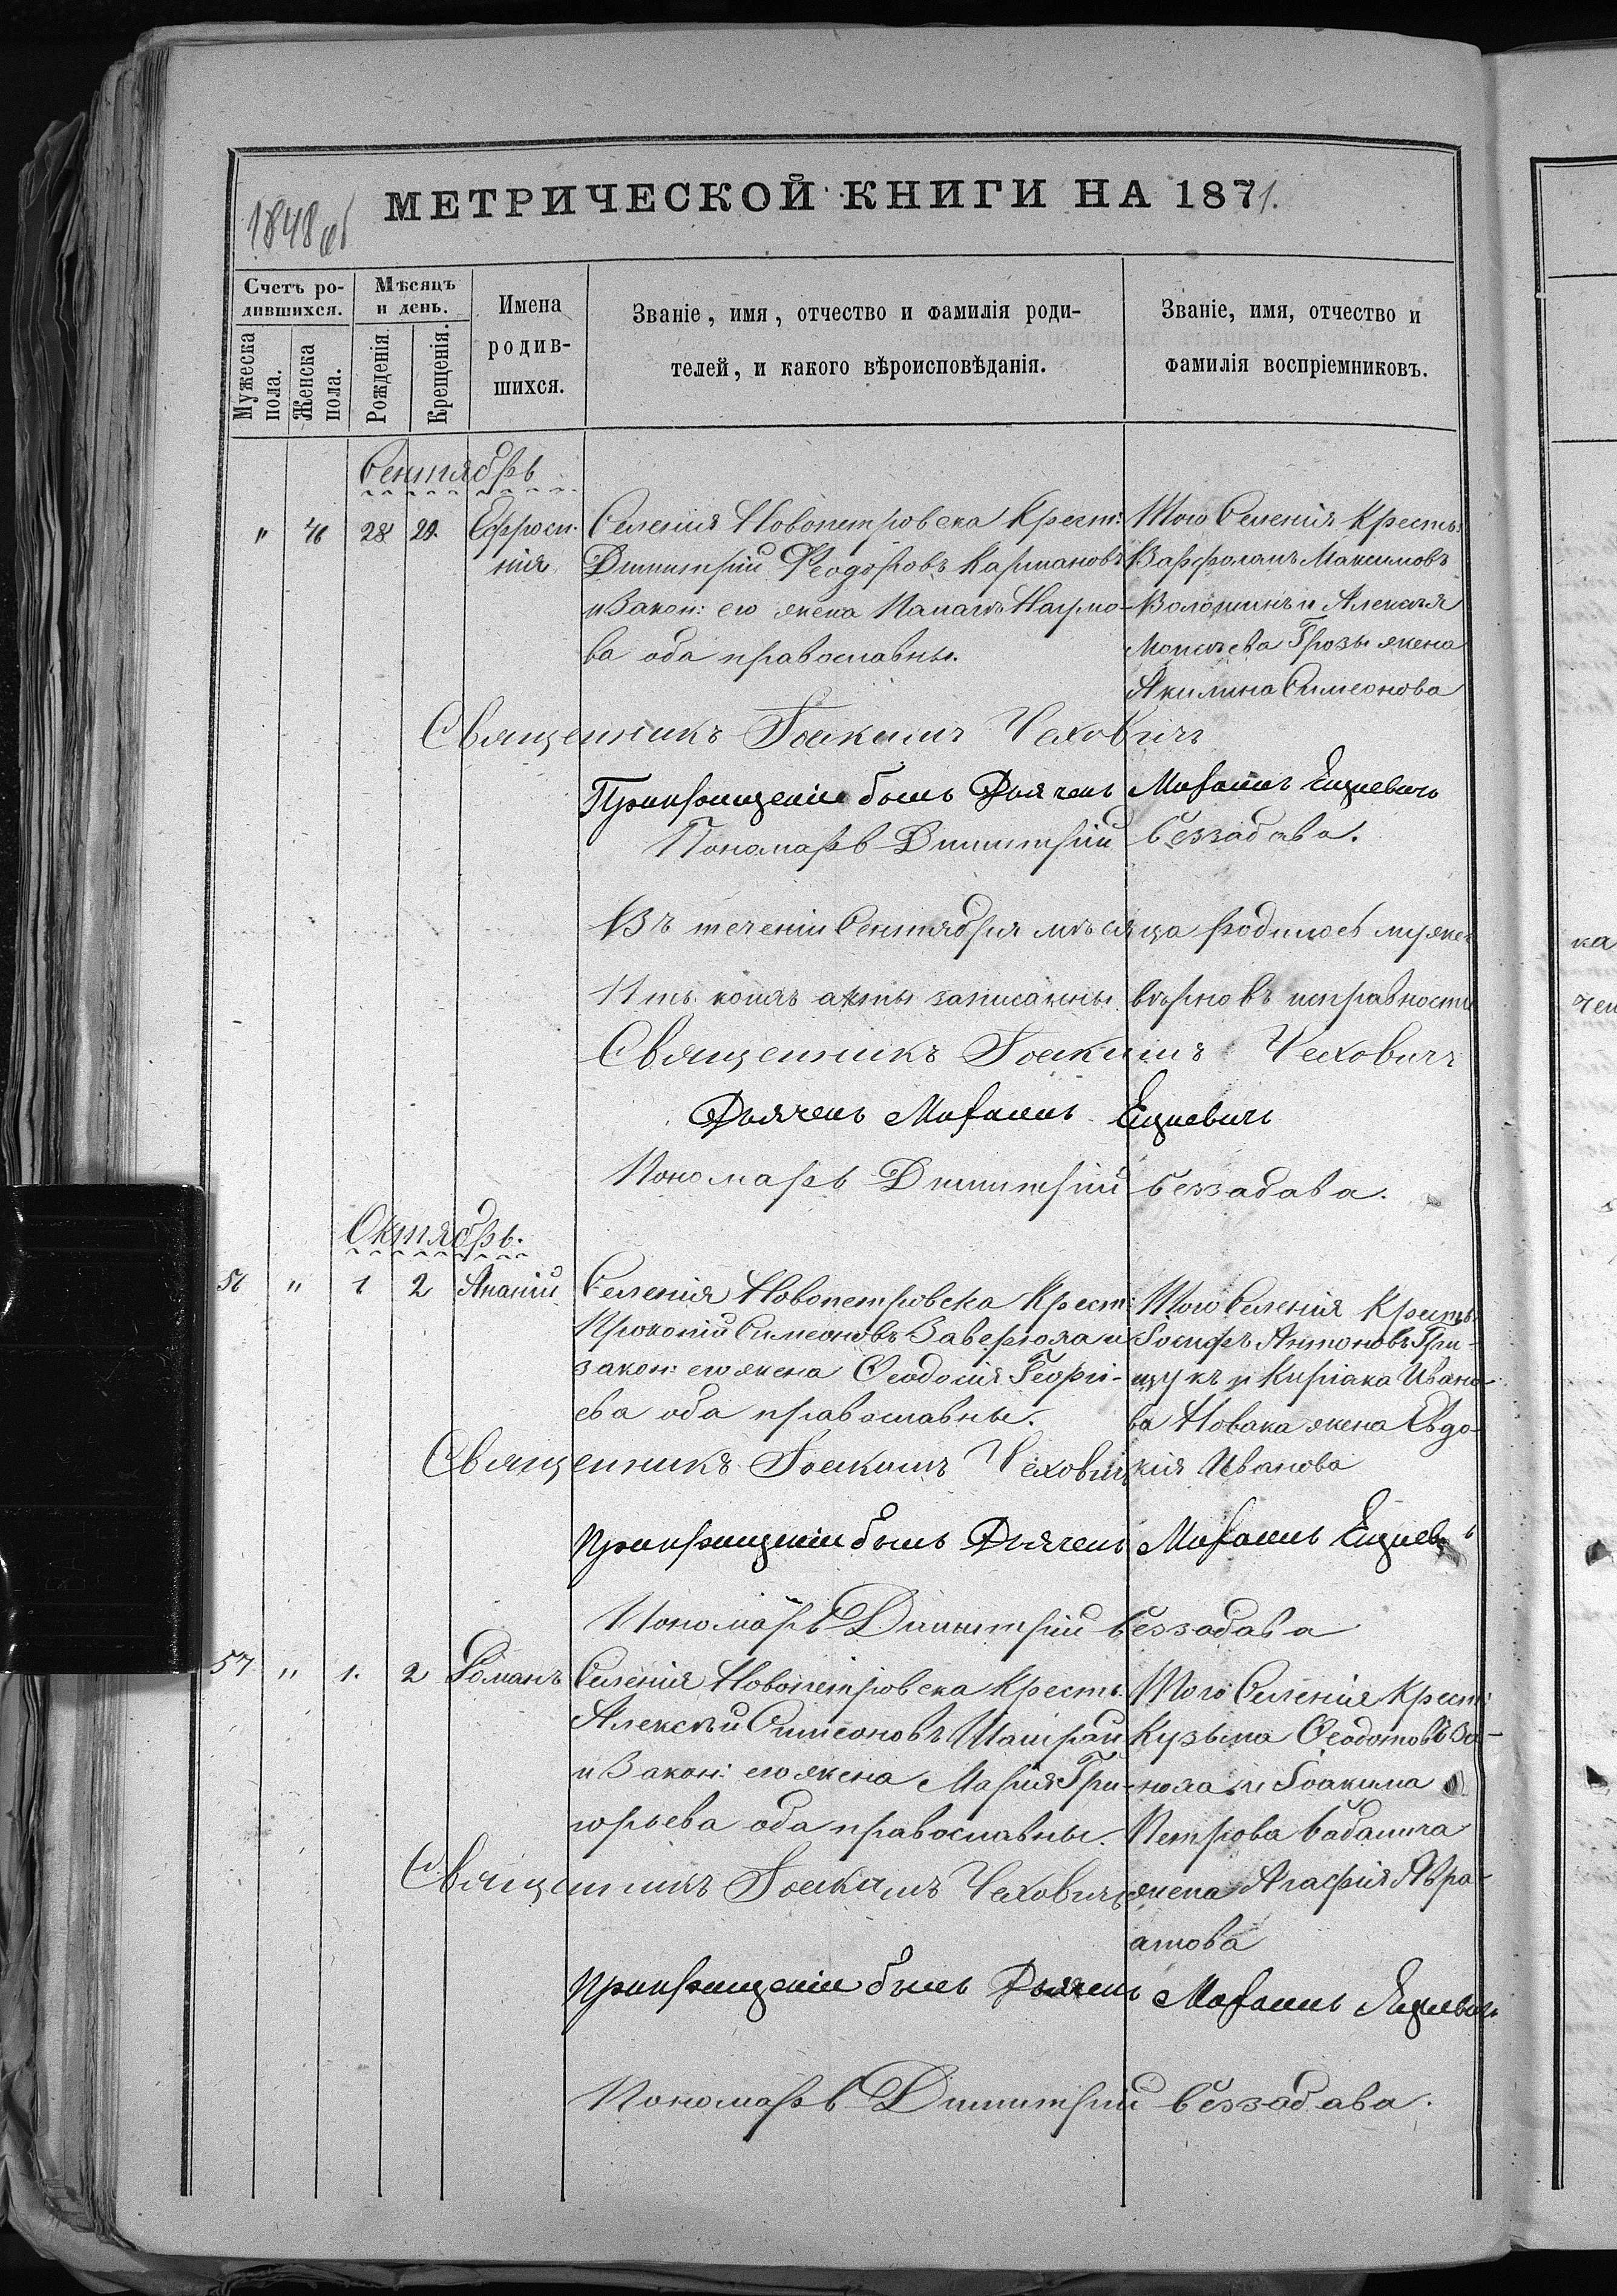 1848 об
МЕТРИЧЕСКОЙ КНИГИ НА 1871.
Счетъ ро-
дившихся.
Мужеска
пола.
Женска
пола.
Мѣсяцъ
и день.
Рожденія.
Крещенія.
Имена
родив-
шихся.
Званіе, имя, отчество и фамилія роди-
телей, и какого вѣроисповѣданія.
Званіе, имя, отчество и
фамилія воспріемниковъ.
Сентябрь
" 46 28 29. Ефроси-
нія
Селенія Новопетровска Крест:
Димитрій Феодоровъ Кармановъ
и Закон: его жена Наумо-
ва оба православны.
Того Селенія Кресть:
Максимовъ
Волошинъ и Алексѣя
Моисѣева Грозы жена
Акилина Симеонова
Священникъ Іоакимъ Чеховичъ
При крещеніи былъ Дьячекъ
Пономарь Димитрій Беззабава.
Въ теченіи Сентября мѣсяца родилось
акты записаны вѣрно въ исправности
Священникъ Іоакимъ Чеховичъ
Дьячекъ
Пономарь Димитрій Беззабава.
Октябрь.
56 " 1 2 Ананій
Селенія Новопетровска Крест:
Прокопій Симеоновъ Заверюха и
закон: его жена Ѳеодосія Георгі-
ева оба православны.
Того Селенія Кресть:
Іосифъ Антоновъ Гри-
щукъ и Киріака Ивано-
ва Новака жена Евдо-
кія Иванова
Священникъ Іоакимъ Чеховичъ
При крещеніи былъ Дьячекъ
Пономарь Димитрій Беззабава
57 " 1. 2 Романъ
Селенія Новопетровска Кресть.
Алексѣй Симеоновъ
и Закон: его жена Марія Гри-
горьева оба православны.
Того Селенія Крест:
Кузьма Ѳеодотовъ
и Іоакима
Петрова
жена Агафія Авра-
амова
Священникъ Іоакимъ Чеховичъ
При крещеніи былъ Дьячекъ
Пономарь Димитрій Беззабава.